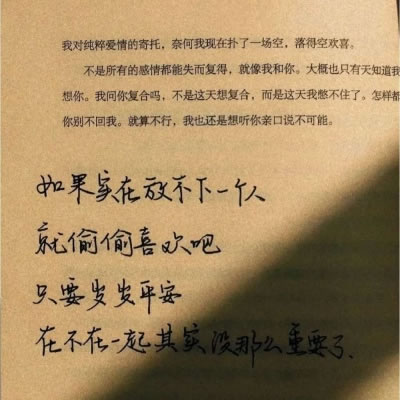 我对纯粹爱情的寄托，奈何我现在扑了一场空，落得空欢喜。
不是所有的感情都能失而复得，就像我和你。大概也只有天知道我
想你。我问你复合吗，不是这天想复合，而是这天我憋不住了。怎样都
你别不回我。就算不行，我也还是想听你亲口说不可能。
如果实在放不下一个人
就偷偷喜欢吧
只要岁岁平安
在不在一起其实没那么重要了.